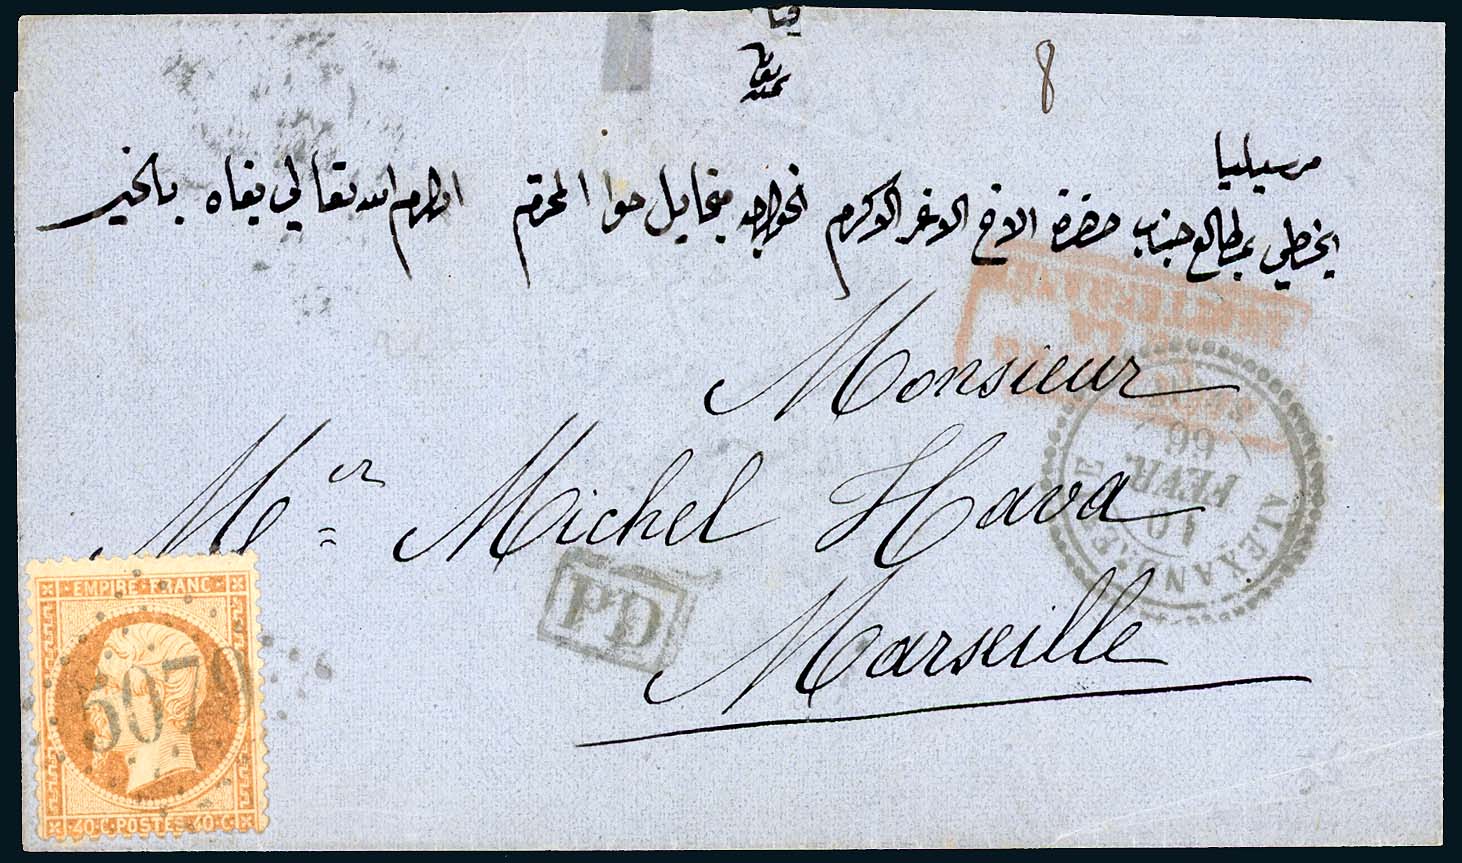 8
مرسيليا
يخطي بمطالع جناب حضرة الاخ الاعز الاكرم الخواجه ميخايل حوا المحترم الله تعالي بقاه بالخير
Monsieur
Mr Michel Hava
Marseille
PD
ALEXANDRIE
10
FEVR.
66
EMPIRE FRANC
5079
40·C·POSTES·40·C